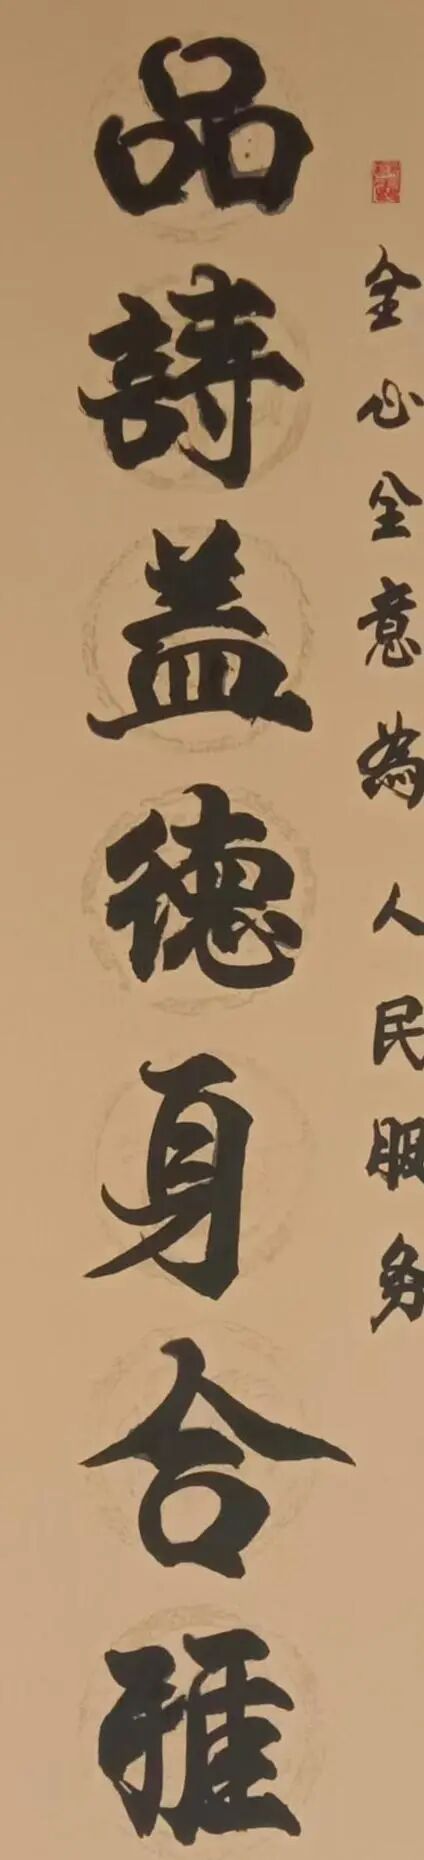 全心全意為人民服务
品詩益德身合雅